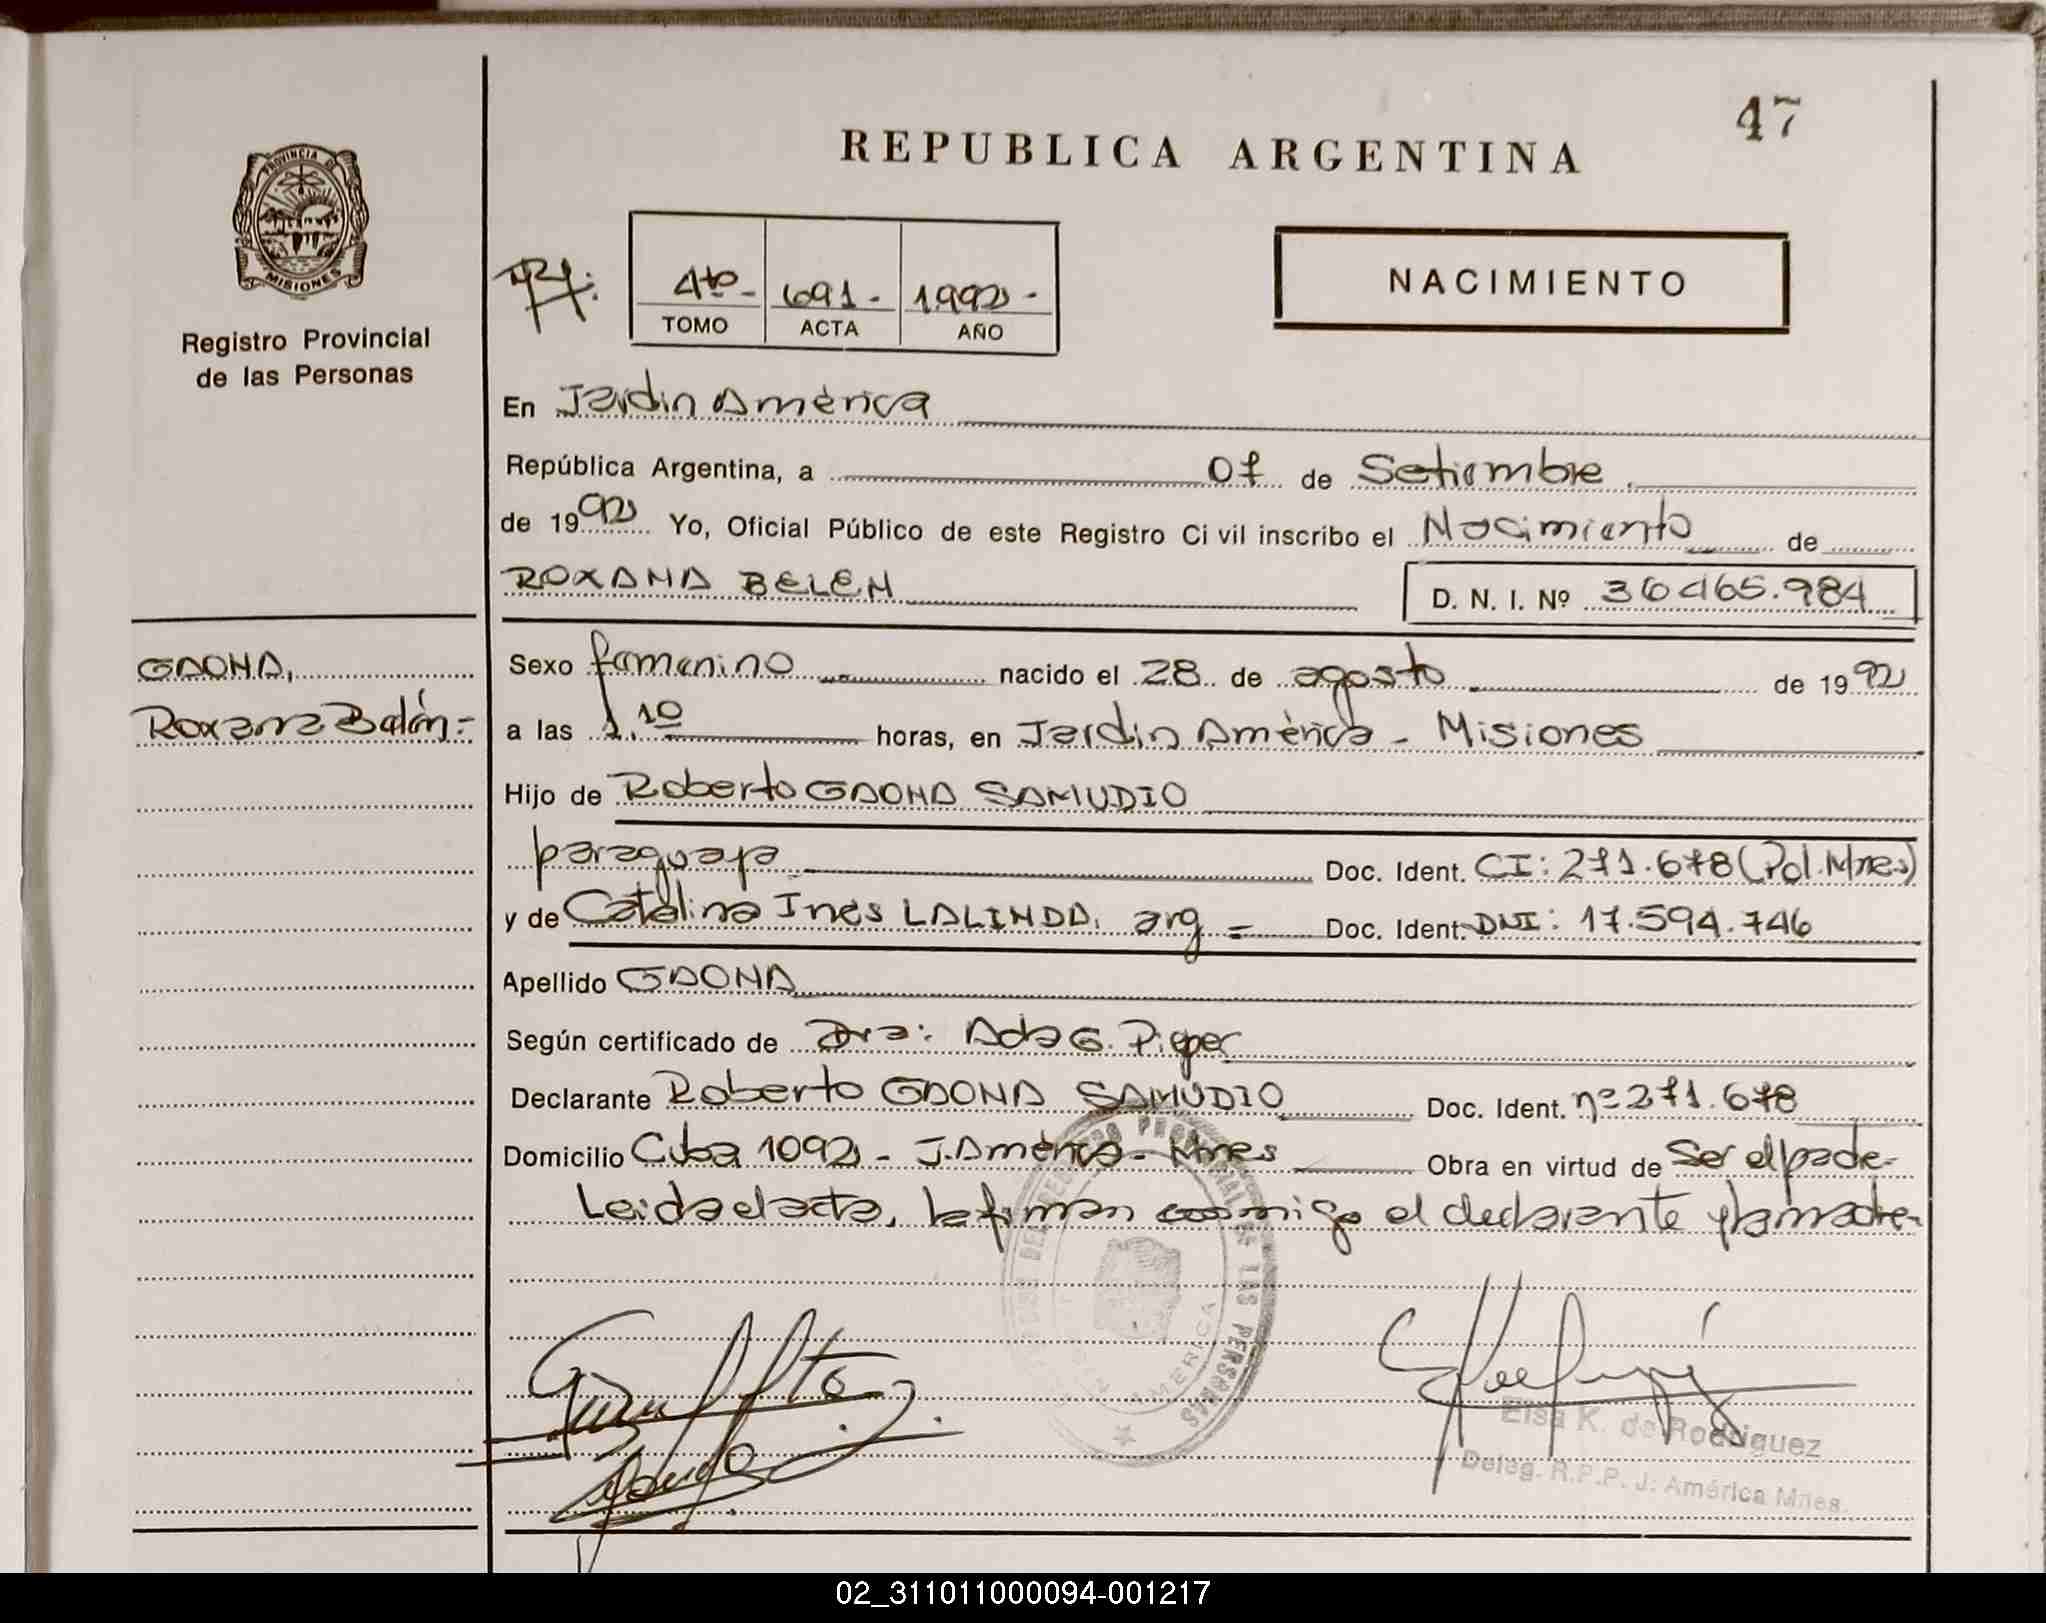 47
REPUBLICA ARGENTINA
PROVINCIA DE
MISIONES
Registro Provincial
de las Personas
4to- 691- 1992-
TOMO ACTA AÑO
NACIMIENTO
En Jardin América
República Argentina, a 07 de Setiembre
de 1992 Yo, Oficial Público de este Registro Ci vil inscribo el Nacimiento de
ROXANA BELEN
D. N. I. Nº 36465.984
GAONA,
Roxana Belén=
Sexo femenino nacido el 28 de agosto de 1992
a las 1.10 horas, en Jardin América - Misiones
Hijo de Roberto GAONA SAMUDIO
paraguaya Doc. Ident. CI: 271.678 (Pol.Mnes)
y de Catalina Ines LALINDA, arg = Doc. Ident. DNI: 17.594.746
Apellido GAONA
Según certificado de Dra: Ada G. Pieper
Declarante Roberto GAONA SAMUDIO Doc. Ident. nº 271.678
Domicilio Cuba 1092 - J. América - Mnes Obra en virtud de Ser el padre-
Leida el acta, la firman conmigo el declarante y la madre-
PROVINCIAL DE LAS PERSONAS
AMERICA
Elsa K. de Rodriguez
Deleg. R.P.P. J. América Mnes.
02_311011000094-001217